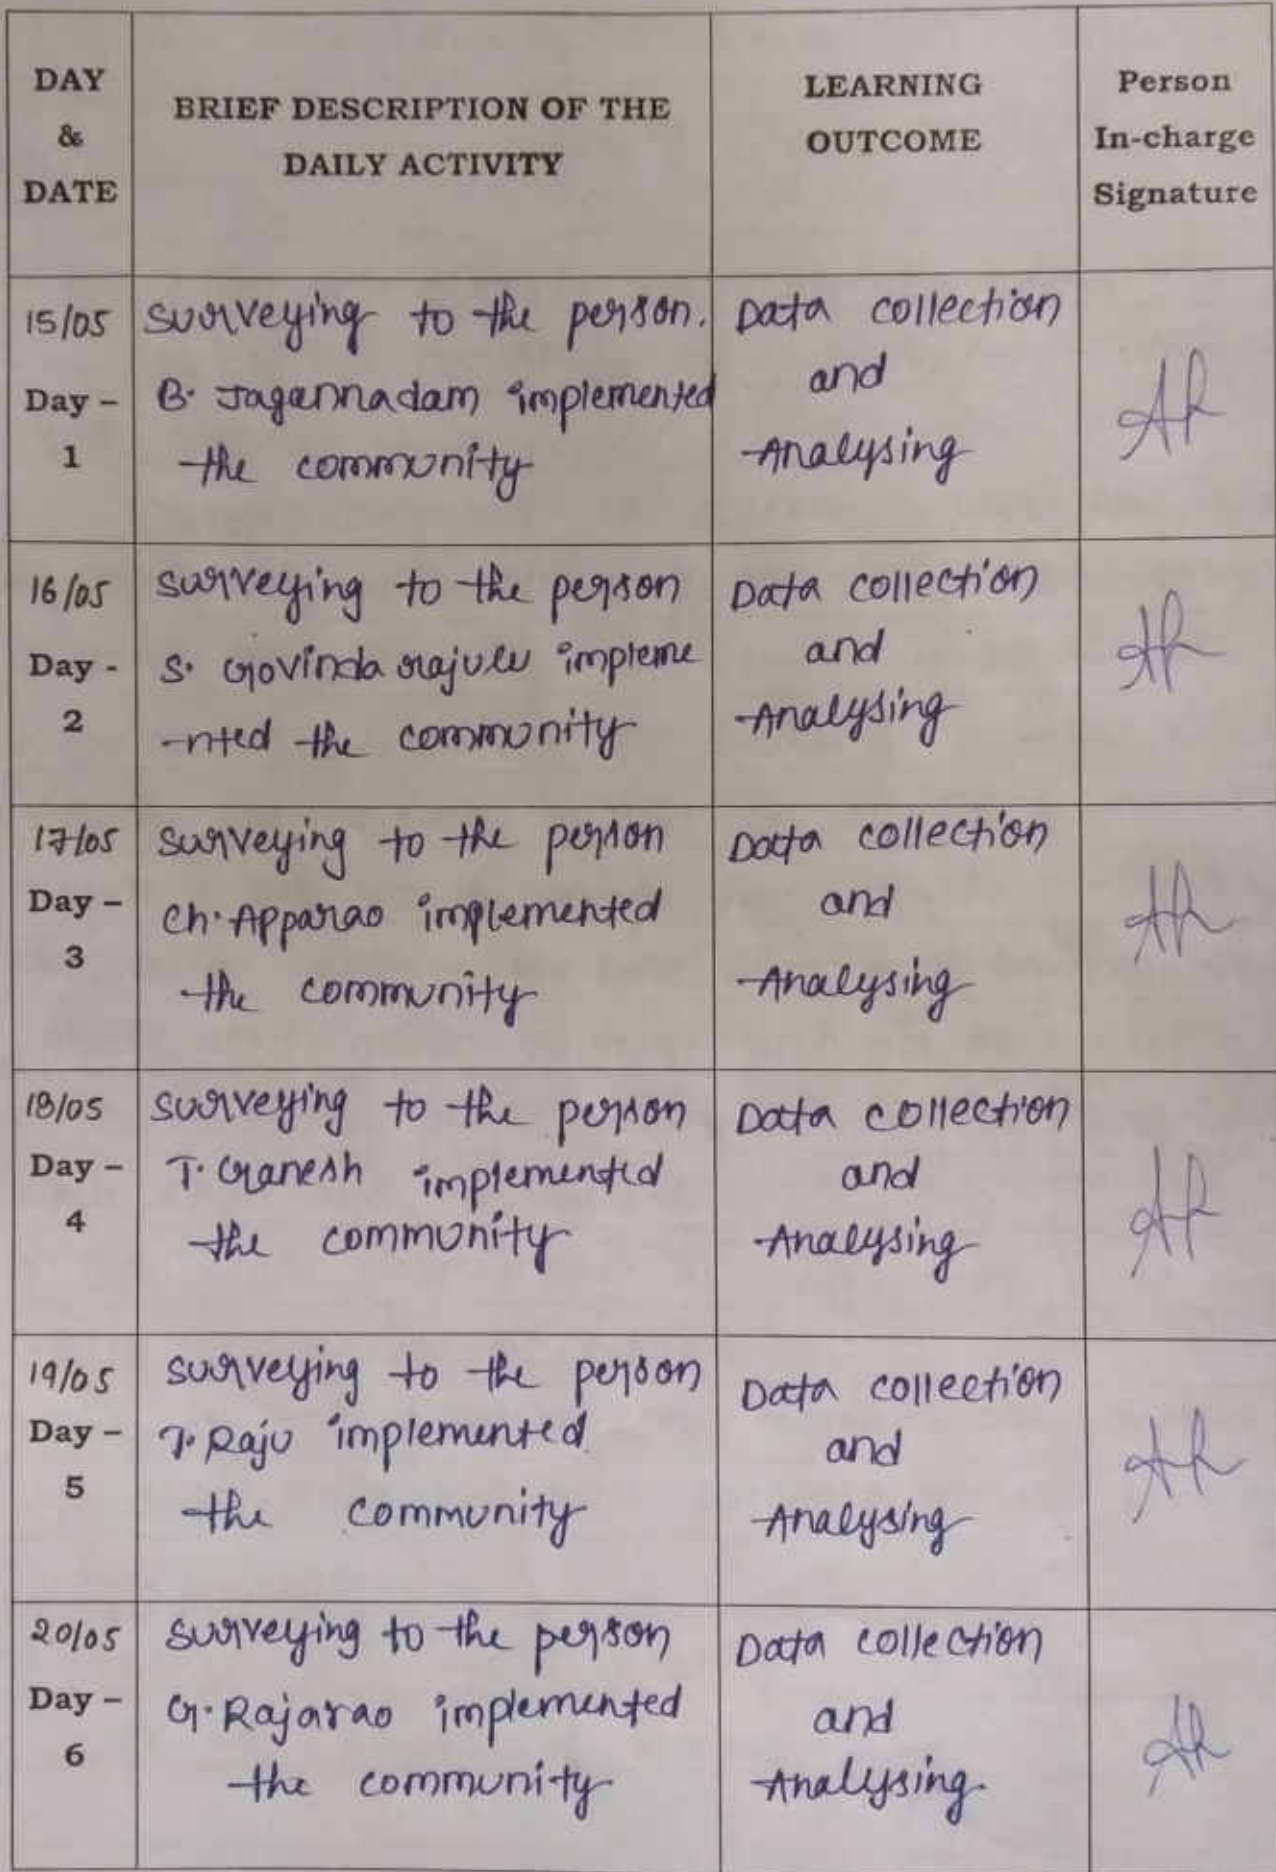 DAY
&
DATE
BRIEF DESCRIPTION OF THE
DAILY ACTIVITY
LEARNING
OUTCOME
Person
In-charge
Signature
15/05
Day –
1
surveying to the person.
B. Jagannadam implemented
the community
Data collection
and
Analysing
16/05
Day -
2
surveying to the person
S. Govinda rajulu impleme
-nted the community
Data collection
and
Analysing
17/05
Day –
3
surveying to the person
Ch. Apparao implemented
the community
Data collection
and
Analysing
18/05
Day –
4
surveying to the person
T. Ganesh implemented
the community
Data collection
and
Analysing
19/05
Day –
5
surveying to the person
Raju implemented
the community
Data collection
and
Analysing
20/05
Day –
6
surveying to the person
G. Rajarao implemented
the community
Data collection
and
Analysing.